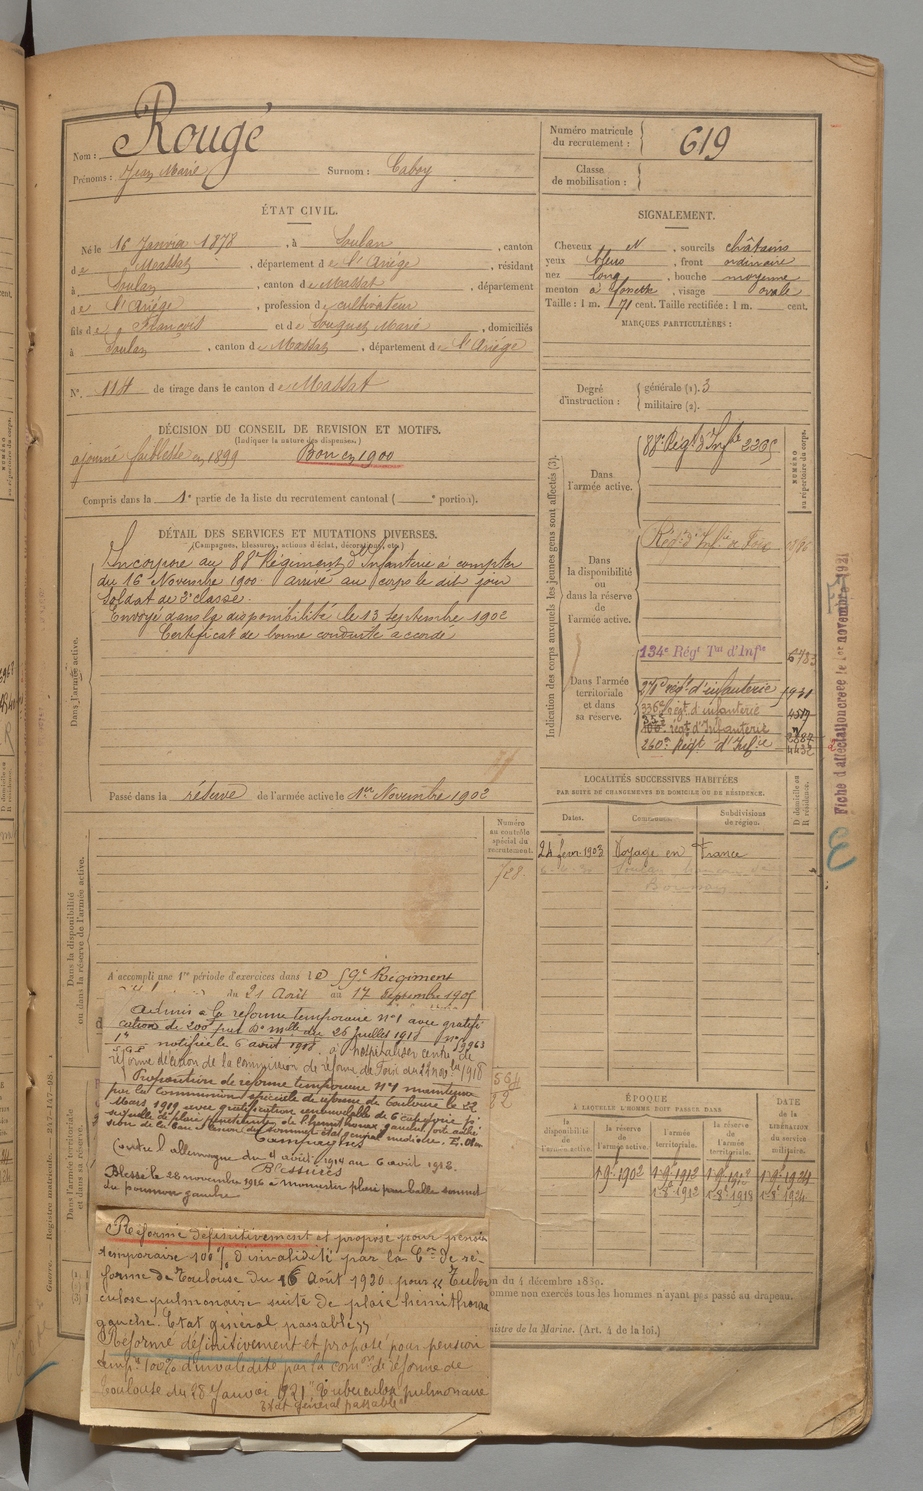 Nom : Rougé
Prénoms : Jean Marie Surnom : Caboy
ÉTAT CIVIL.
Né le 16 Janvier 1878, à Soulan, canton
de Massat, département de l'Ariège, résidant
à Soulan, canton de Massat, département
de l'Ariège, profession de cultivateur
fils de François et de Souquet Marie, domiciliés
à Soulan, canton de Massat, département de l'Ariège
N° 114 de tirage dans le canton de Massat
DÉCISION DU CONSEIL DE REVISION ET MOTIFS.
(Indiquer la nature des dispenses.)
ajourné faiblesse en 1899 Bon en 1900
Compris dans la 1e partie de la liste du recrutement cantonal ( e portion).
DÉTAIL DES SERVICES ET MUTATIONS DIVERSES.
(Campagnes, blessures, actions d'éclat, décorations, etc.)
Dans l'armée active.
Incorporé au 88e Régiment d'Infanterie à compter
du 16 Novembre 1900. arrivé au corps le dit jour
Soldat de 2e classe.
Envoyé dans la disponibilité le 13 septembre 1902
Certificat de bonne conduite accordé
Passé dans la réserve de l'armée active le 1er Novembre 1902
Numéro au contrôle spécial du recrutement.
728.
Dans la disponibilité ou dans la réserve de l'armée active.
A accompli une 1re période d'exercices dans le 59e Régiment
du 21 Août au 17 septembre 1905
Admis à la réforme temporaire n°1 avec gratifi
cation de 200f par Don mlle du 26 Juillet 1918
notifiée le 6 août 1918. à hospitaliser centre de
réforme décision de la commission de réforme de Foix du 1918
Proposition de réforme temporaire N°1 maintenue
par la commission spéciale de réforme de Toulouse le 22
Mars 1919 avec gratification renouvelable de 6e catégorie p
séquelle de plaie pénétrante de l'hémithorax gauche
sion de la base du sommet état général médiocre.
Campagnes
Contre l'allemagne du 4 août 1914 au 6 août 1918.
Blessures
Blessé le 28 novembre 1916 à Monastir plaie par balle sommet
du poumon gauche
Réformé définitivement et proposé pour pension
temporaire 100% d'invalidité par la Con de ré-
forme de Toulouse du 16 Août 1920 pour « Tuber
culose pulmonaire suite de plaie hémithorax
gauche. Etat général passable »
Réformé définitivement et proposé pour pension
tempre 100% d'invalidité par la comon de réforme de
Toulouse du 28 Janvier 1921 "Tuberculose pulmonaire
Etat général passable"
Numéro matricule du recrutement : 619
Classe de mobilisation :
SIGNALEMENT.
Cheveux N, sourcils châtains
yeux bleus, front ordinaire
nez long, bouche moyenne
menton à fossette, visage ovale
Taille : 1 m. 71 cent. Taille rectifiée : 1 m. cent.
MARQUES PARTICULIÈRES :
Degré d'instruction : générale (1). 3
militaire (2).
Indication des corps auxquels les jeunes gens sont affectés (3).
NUMÉRO au répertoire du corps.
Dans l'armée active.
88e Régt d'Infie
Dans la disponibilité ou dans la réserve de l'armée active.
Régt d'Infie de Foix
Dans l'armée territoriale et dans sa réserve.
134e Régt Tal d'Infie 6483
régt d'infanterie 1931
336e Régt d'infanterie
régt d'Infanterie
260e Régt d'Infie 4432
LOCALITÉS SUCCESSIVES HABITÉES
PAR SUITE DE CHANGEMENTS DE DOMICILE OU DE RÉSIDENCE.
D domicile ou R résidence.
Dates. Communes. Subdivisions de région.
24 fevr. 1903 Voyage en France
ÉPOQUE
À LAQUELLE L'HOMME DOIT PASSER DANS
DATE de la LIBÉRATION du service militaire.
la disponibilité de l'armée active. la réserve de l'armée active. l'armée territoriale. la réserve de l'armée territoriale.
1 9bre 1902 1 9bre 1912 1 9bre 1924
1-8bre 1912 1-8bre 1918 1-8bre 1924
du 4 décembre 1830.
omme non exercés tous les hommes n'ayant pas passé au drapeau.
nistre de la Marine. (Art. 4 de la loi.)
Fiche d'affectation créée le 1er novembre 1921
Dans l'armée territoriale et dans sa réserve.